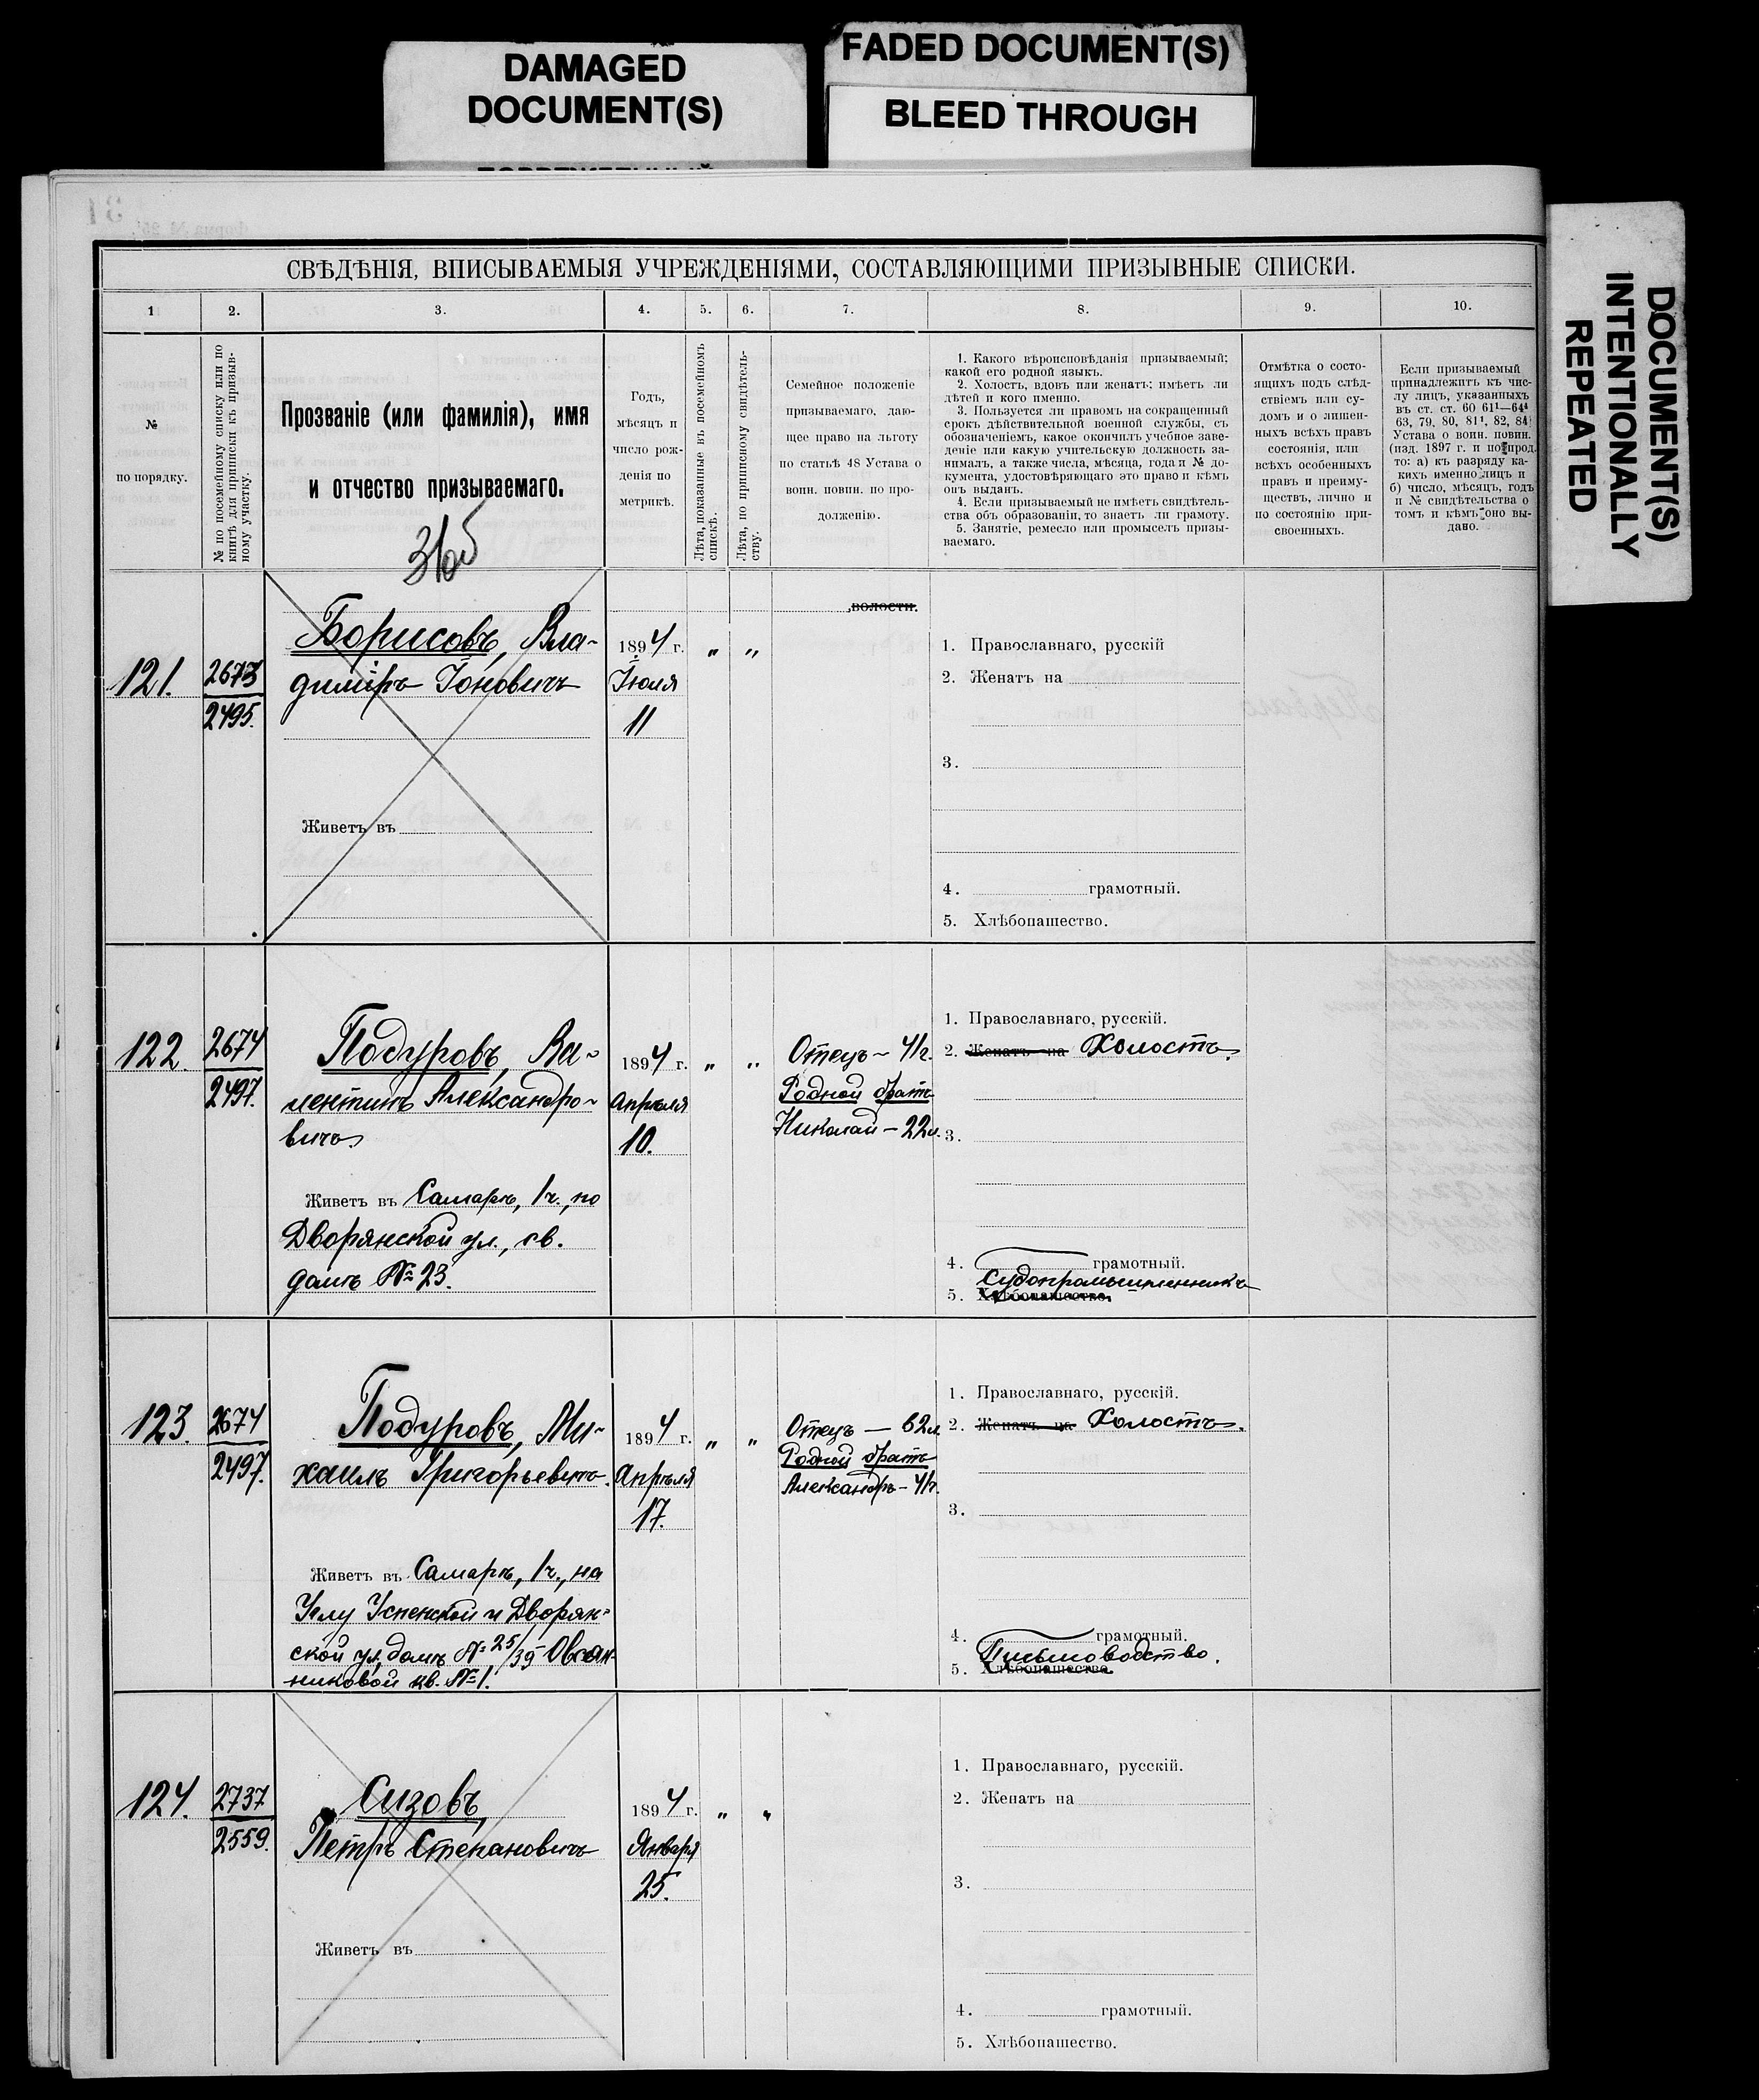 DAMAGED
DOCUMENT(S)
FADED DOCUMENT(S)
BLEED THROUGH
DOCUMENT(S)
INTENTIONALLY
REPEATED
СВѢДѢНІЯ, ВПИСЫВАЕМЫЯ УЧРЕЖДЕНІЯМИ, СОСТАВЛЯЮЩИМИ ПРИЗЫВНЫЕ СПИСКИ.
1 2. 3. 4. 5. 6. 7. 8. 9. 10.
№
по порядку.
№ по посемейному списку или по
книгѣ для приписки къ призыв-
ному участку.
Прозваніе (или фамилія), имя
и отчество призываемаго.
Годъ,
мѣсяцъ и
число рож-
денія по
метрикѣ.
Лѣта, показанные въ посемейномъ
спискѣ.
Лѣта, по приписному свидѣтель-
ству.
Семейное положеніе
призываемаго, даю-
щее право на льготу
по статьѣ 48 Устава о
воин. повин. по про-
долженію.
1. Какого вѣроисповѣданія призываемый;
какой его родной языкъ.
2. Холостъ, вдовъ или женатъ; имѣетъ ли
дѣтей и кого именно.
3. Пользуется ли правомъ на сокращенный
срокъ дѣйствительной военной службы, съ
обозначеніемъ, какое окончилъ учебное заве-
деніе или какую учительскую должность за-
нималъ, а также числа, мѣсяца, года и № до-
кумента, удостовѣряющаго это право и кѣмъ
онъ выданъ.
4. Если призываемый не имѣетъ свидѣтель-
ства объ образованіи, то знаетъ ли грамоту.
5. Занятіе, ремесло или промыселъ призы-
ваемаго.
Отмѣтка о состо-
ящихъ подъ слѣд-
ствіемъ или су-
домъ и о лишен-
ныхъ всѣхъ правъ
состоянія, или
всѣхъ особенныхъ
правъ и преиму-
ществъ, лично и
по состоянію при-
своенныхъ.
Если призываемый
принадлежитъ къ чис-
лу лицъ, указанныхъ
въ ст. ст. 60 61¹—64¹
63, 79, 80, 81¹, 82, 84
Устава о воин. повин.
(изд. 1897 г. и по прод.
то: а) къ разряду ка-
кихъ именно лицъ и
б) число, мѣсяцъ, годъ
и № свидѣтельства о
томъ и кѣмъ оно вы-
дано.
волости.
121. 2673
2495.
Борисовъ, Вла-
димiръ Іоновичъ
Живетъ въ
1894 г. „ „
Іюля
11
1. Православнаго, русскій
2. Женатъ на
3.
4. грамотный.
5. Хлѣбопашество.
122. 2674
2497.
Подуровъ, Ва-
лентинъ Александро-
вичъ
Живетъ въ Самарѣ, 1ч., по
Дворянской ул., св.
домъ №23.
1894 г. „ „
Апрѣля
10.
Отецъ - 41г.
Родной братъ
Николай - 22л.
1. Православнаго, русскій.
2. Женатъ на Холостъ.
3.
4. грамотный.
Судопромышленникъ
5. Хлѣбопашество.
123. 2674
2497.
Подуровъ, Ми-
хаилъ Григорьевичъ.
Живетъ въ Самарѣ, 1ч., на
Углу Успенской и Дворян-
ской ул, домъ №25/39 Овсян-
никовой кв. №1.
1894 г. „ „
Апрѣля
17.
Отецъ — 62л.
Родной братъ
Александръ - 41г.
1. Православнаго, русскій.
2. Женатъ на Холостъ.
3.
4. грамотный.
Письмоводство.
5. Хлѣбопашество.
124. 2737
2559.
Сизовъ,
Петръ Степановичъ
Живетъ въ
1894 г. „ „
Января
25.
1. Православнаго, русскій.
2. Женатъ на
3.
4. грамотный.
5. Хлѣбопашество.